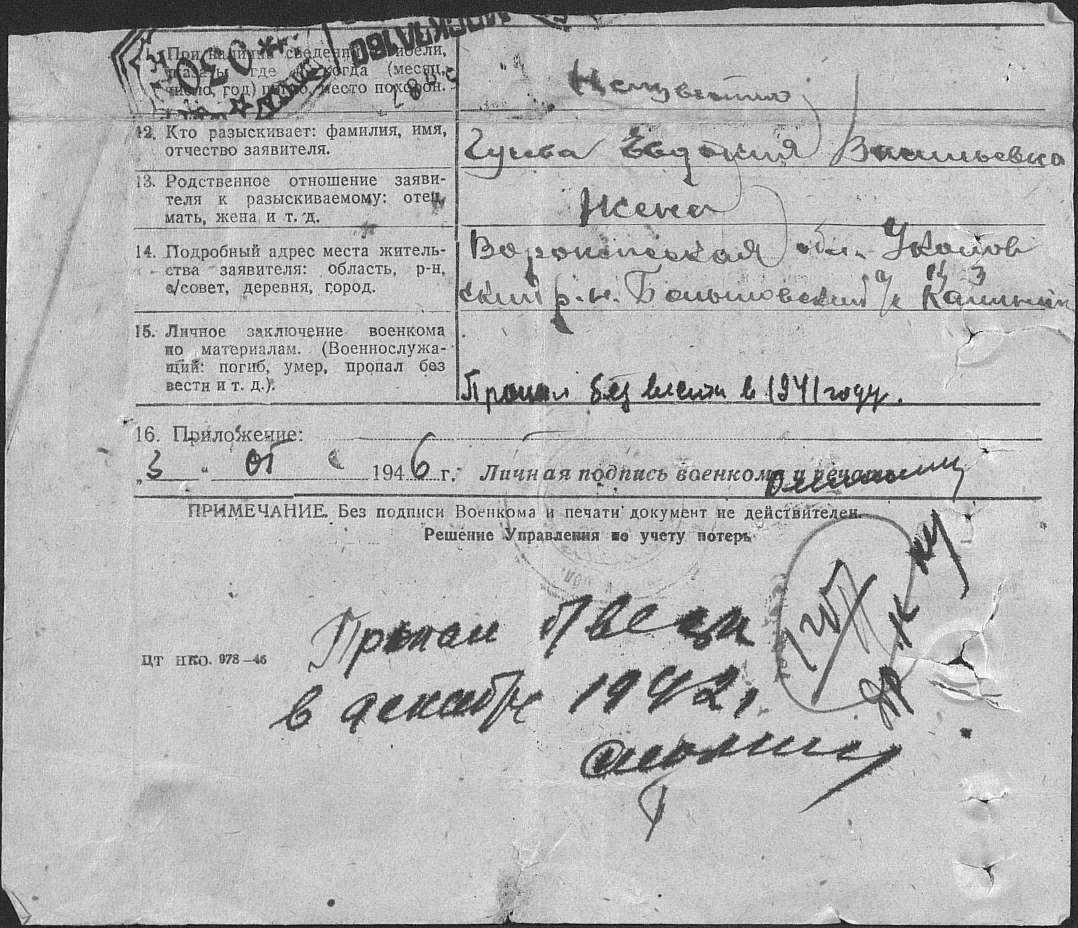 При наличии сведений о гибели,
указать где и когда (месяц,
число, год) погиб, место похорон.
Неизвестно
12. Кто разыскивает: фамилия, имя,
отчество заявителя.
Евдокия Васильевна
13. Родственное отношение заяви-
теля к разыскиваемому: отец,
мать, жена и т. д.
Жена
14. Подробный адрес места житель-
ства заявителя: область, р-н,
с/совет, деревня, город.
Воронежская обл. Уколов
ский р-н.
15. Личное заключение военкома
по материалам. (Военнослужа-
щий: погиб, умер, пропал без
вести и т. д.).
Пропал без вести в 1941 году.
16. Приложение:
„3 " 05 1946 г. Личная подпись военкома и печать
ПРИМЕЧАНИЕ. Без подписи Военкома и печати документ не действителен.
Решение Управления по учету потерь
Пропал б/вести
в декабре 1942 г.
ЦТ НКО. 978—46